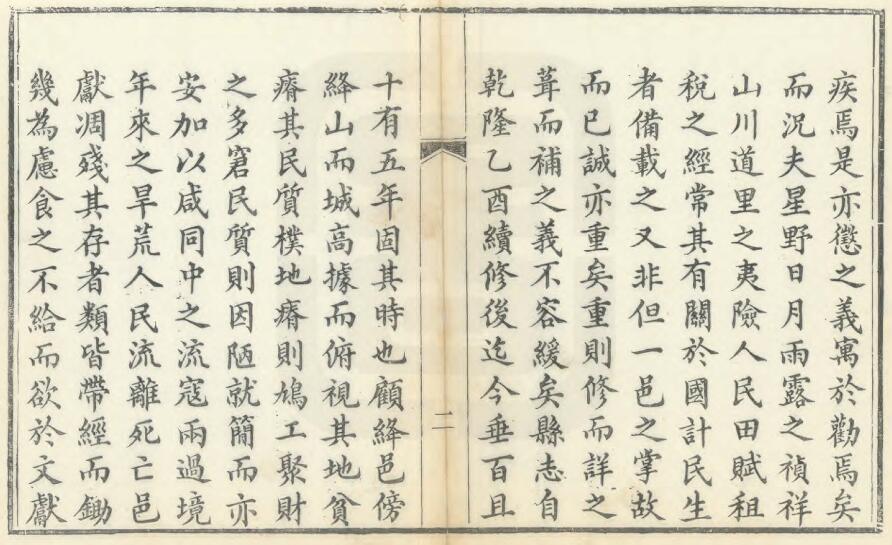 疾焉是亦懲之義寓於勸焉矣
而况夫星野日月雨露之禎祥
山川道里之夷險人民田賦租
稅之經常其有關於國計民生
者備載之又非但一邑之掌故
而已誠亦重矣重則修而詳之
葺而補之義不容緩矣縣志自
乾隆乙酉續修後迄今垂百且
二
十有五年固其時也顧絳邑傍
絳山而城高據而俯視其地貧
瘠其民質樸地瘠則鳩工聚財
之多窘民質則因陋就簡而亦
安加以咸同中之流寇兩過境
年來之旱荒人民流離死亡邑
獻凋殘其存者類皆帶經而鋤
幾為慮食之不給而欲於文獻